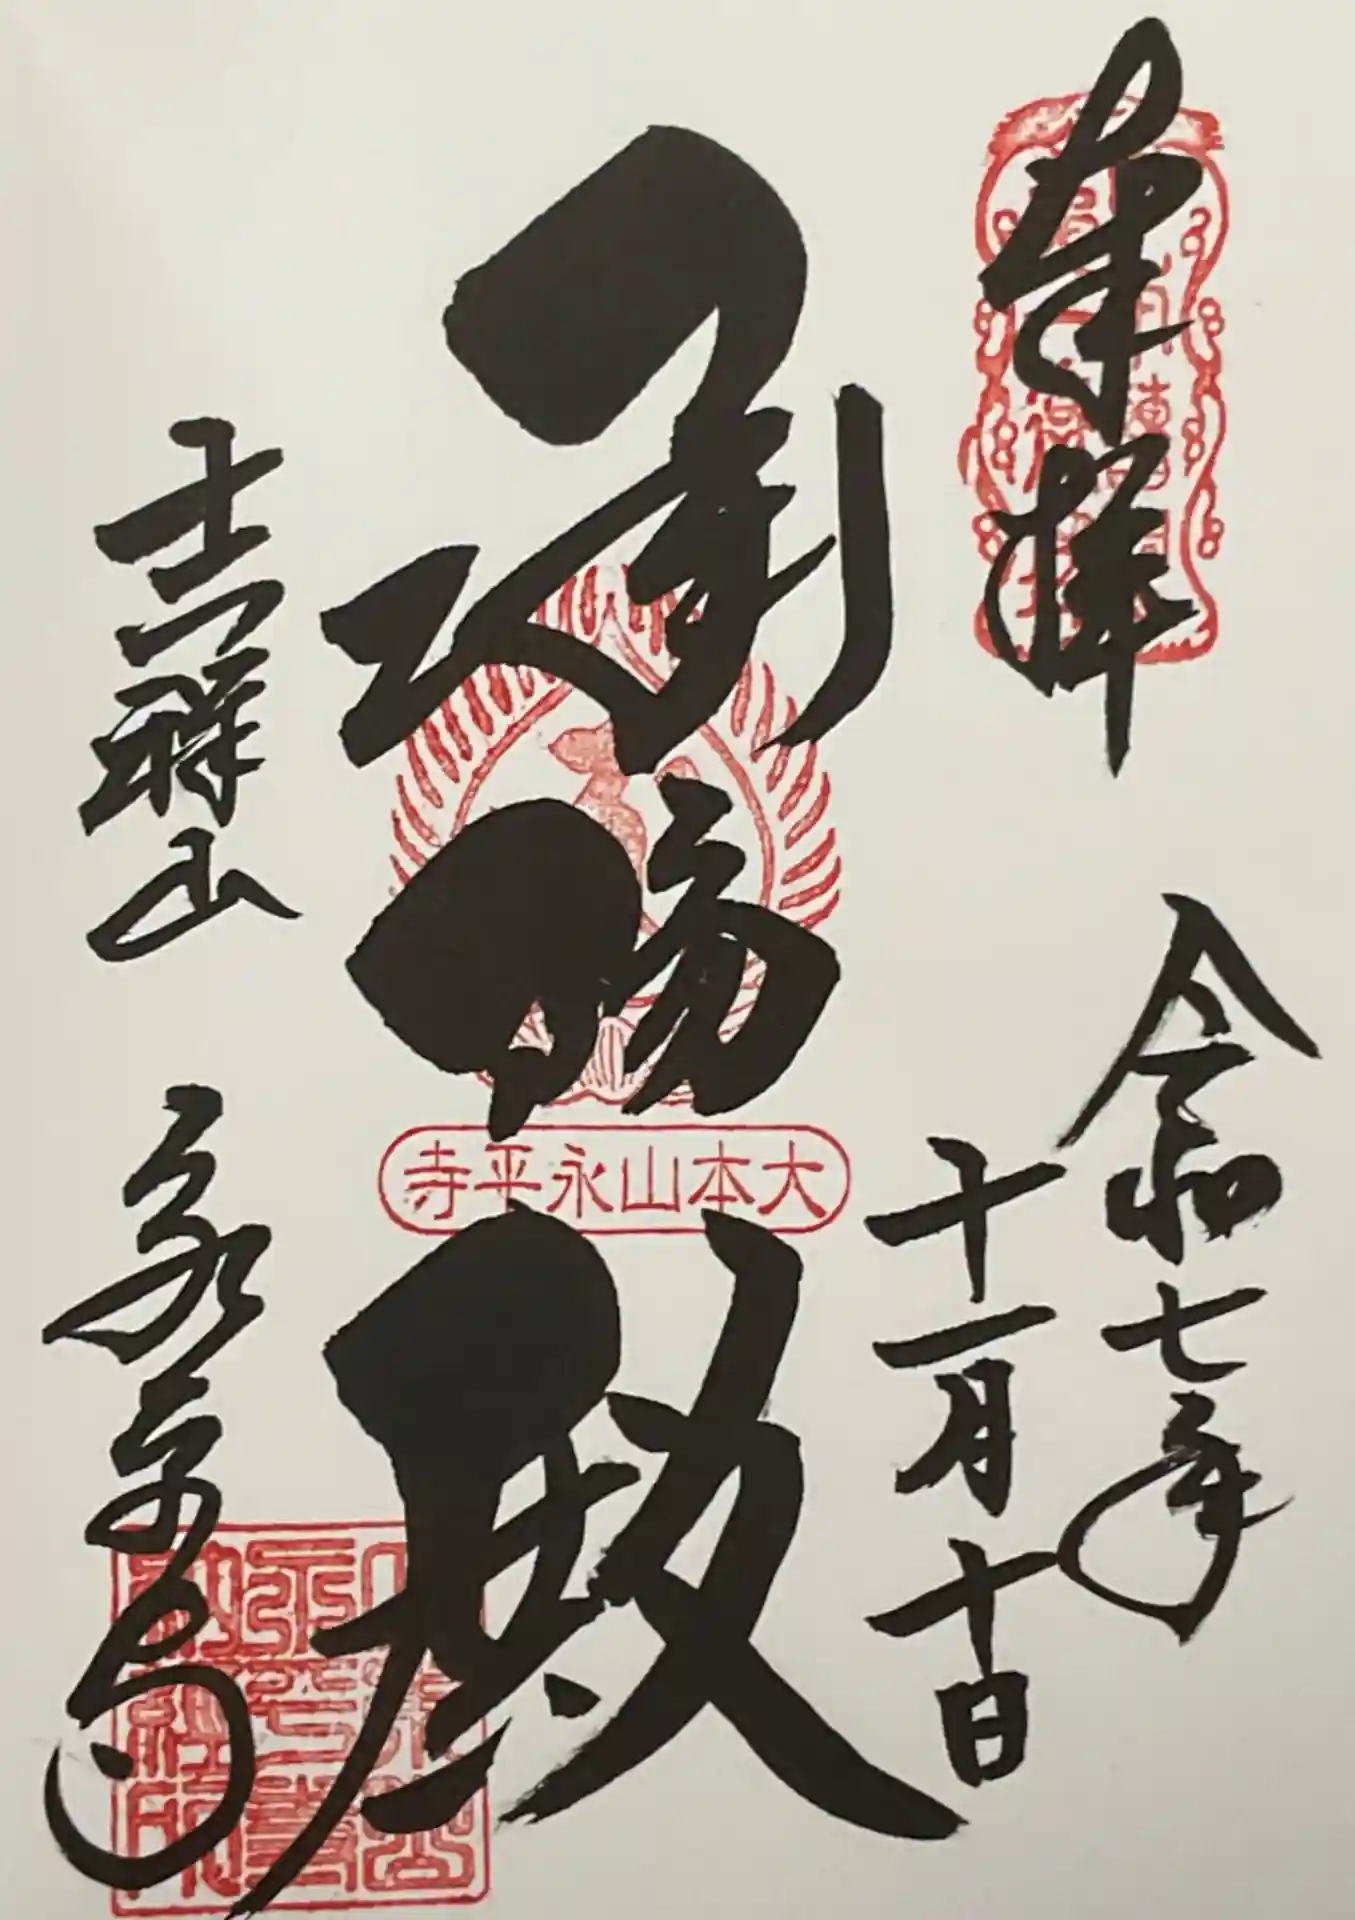 奉拝
令和七年
十一月十日
承陽殿
大本山永平寺
吉祥山 永平寺